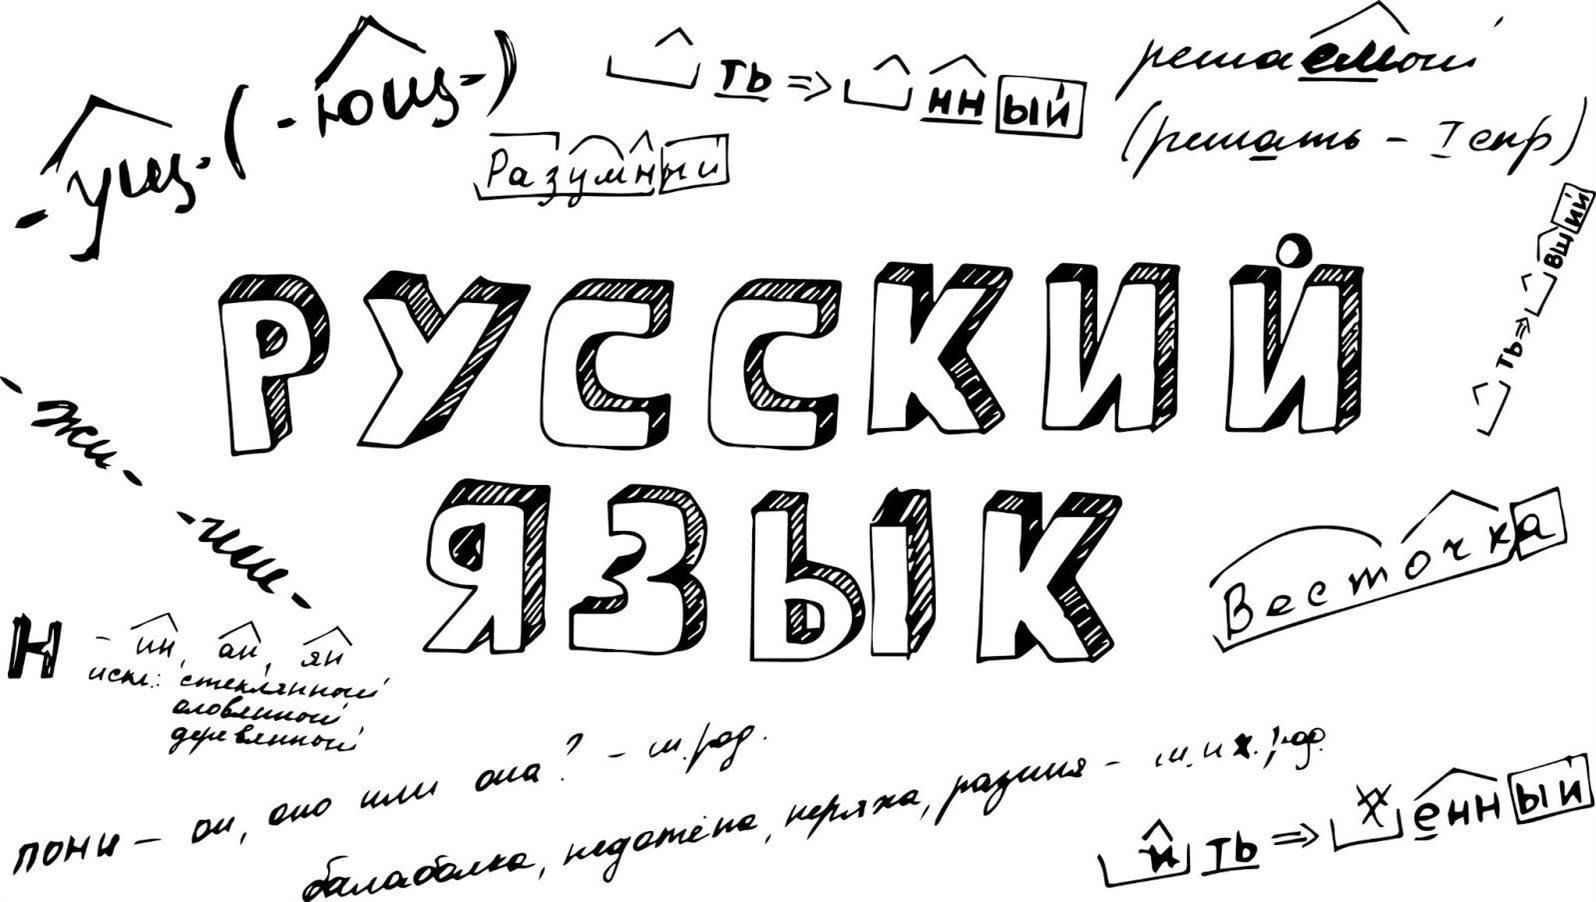 -ущ-(-ющ-)
ть ⇒ нный
Разумный
решаемый
(решать - I спр)
ть ⇒ вщий
РУССКИЙ
ЯЗЫК
- жи -
- ши -
Весточка
Н - ин, ан, ян
искл.: стеклянный
оловянный
деревянный
пони - он, оно или она? - м.род.
балаболка, недотёпа, неряха, разиня - м. и ж. род.
и ть ⇒ енный